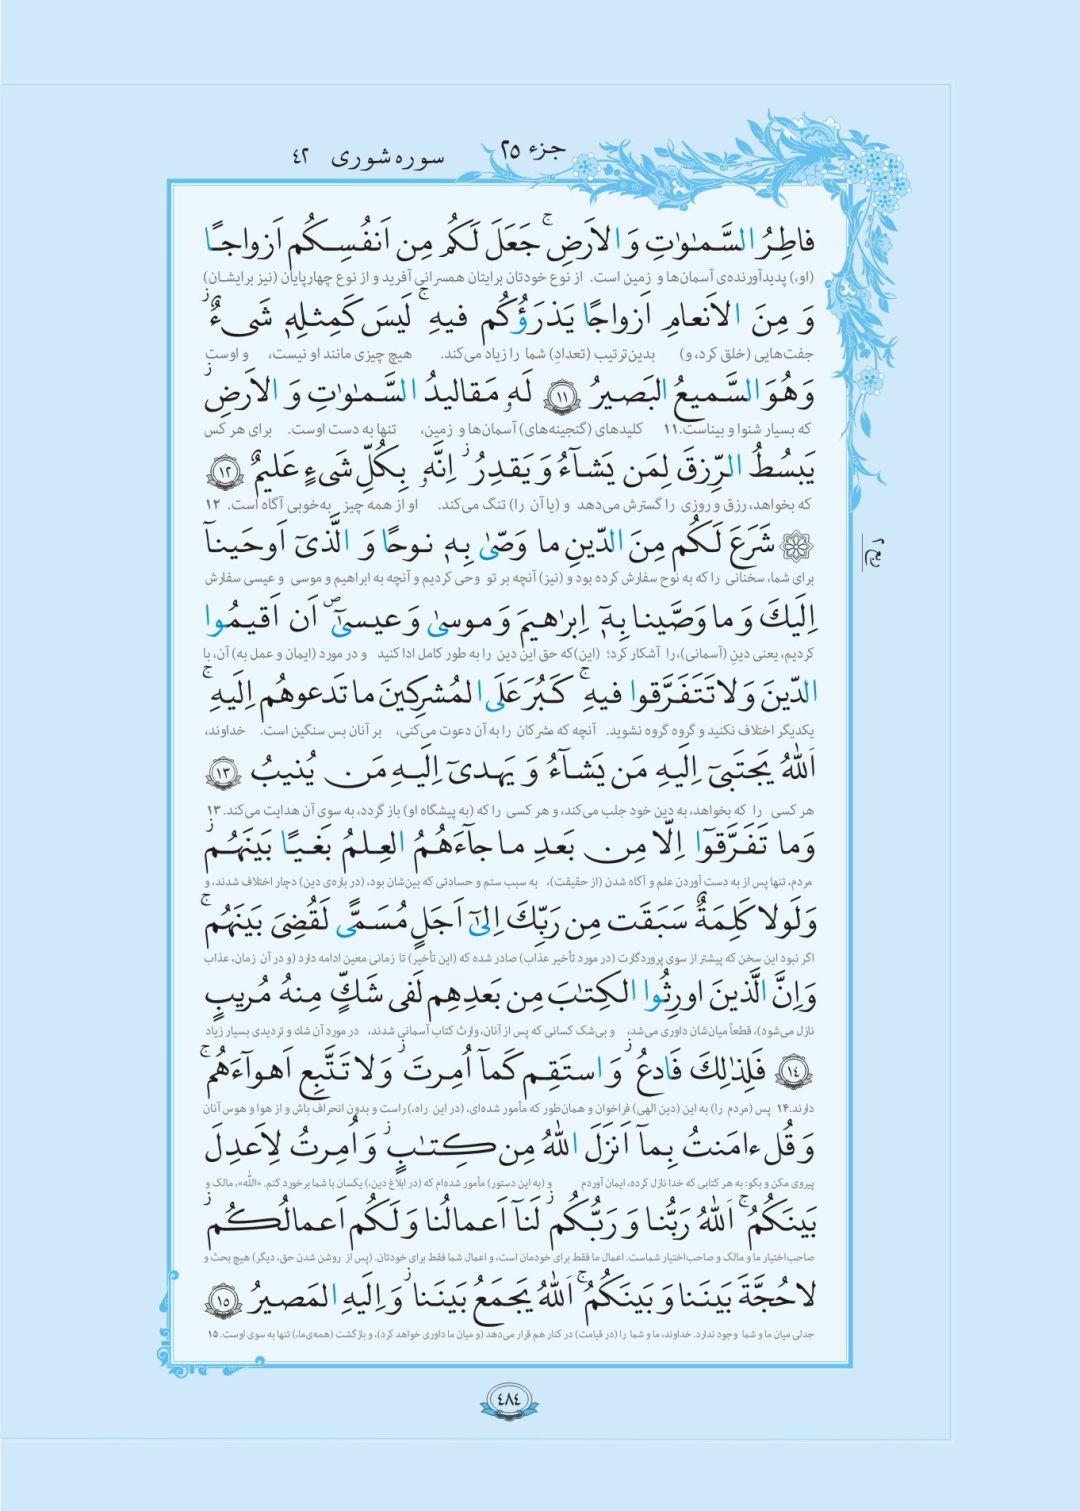 جزء ۲۵
سوره شوری ۴۲
فاطِرُ السَّمٰوٰتِ وَ الاَرضِ ۚ جَعَلَ لَكُم مِن اَنفُسِكُم اَزواجًا
(او،) پدیدآورنده‌ی آسمان‌ها و زمین است. از نوع خودتان برایتان همسرانی آفرید و از نوع چهارپایان (نیز برایشان)
وَ مِنَ الاَنعامِ اَزواجًا يَذرَؤُكُم فيهِ ۚ لَيسَ كَمِثلِهٖ شَیءٌ ۖ
جفت‌هایی (خلق کرد، و) بدین‌ترتیب (تعدادِ) شما را زیاد می‌کند. هیچ چیزی مانند او نیست، و اوست
وَهُوَ السَّميعُ البَصيرُ ۱۱ لَهٗ مَقاليدُ السَّمٰوٰتِ وَ الاَرضِ ۖ
که بسیار شنوا و بیناست.۱۱ کلیدهای (گنجینه‌های) آسمان‌ها و زمین، تنها به دست اوست. برای هر کس
يَبسُطُ الرِّزقَ لِمَن يَشآءُ وَ يَقدِرُ ۚ اِنَّهٗ بِكُلِّ شَیءٍ عَليمٌ ۱۲
که بخواهد، رزق و روزی را گسترش می‌دهد و (یا آن را) تنگ می‌کند. او از همه چیز به‌خوبی آگاه است. ۱۲
شَرَعَ لَكُم مِنَ الدّينِ ما وَصّیٰ بِهٖ نوحًا وَ الَّذیٓ اَوحَينآ
برای شما، سخنانی را که به نوح سفارش کرده بود و (نیز) آنچه بر تو وحی کردیم و آنچه به ابراهیم و موسی و عیسی سفارش
اِلَيكَ وَ ما وَصَّينا بِهٖٓ اِبرٰهيمَ وَ موسیٰ وَ عيسیٰٓ ۖ اَن اَقيمُوا
کردیم، یعنی دینِ (آسمانی)، را آشکار کرد؛ (این)که حق این دین را به طور کامل ادا کنید و در مورد (ایمان و عمل به) آن، با
الدّينَ وَ لا تَتَفَرَّقوا فيهِ ۚ كَبُرَ عَلَی المُشرِكينَ ما تَدعوهُم اِلَيهِ ۚ
یکدیگر اختلاف نکنید و گروه گروه نشوید. آنچه که مشرکان را به آن دعوت می‌کنی، بر آنان بس سنگین است. خداوند،
اَللّٰهُ يَجتَبیٓ اِلَيهِ مَن يَشآءُ وَ يَهدیٓ اِلَيهِ مَن يُنيبُ ۱۳
هر کسی را که بخواهد، به دین خود جلب می‌کند، و هر کسی را که (به پیشگاه او) باز گردد، به سوی آن هدایت می‌کند.۱۳
وَ ما تَفَرَّقوٓا اِلّا مِن بَعدِ ما جآءَهُمُ العِلمُ بَغيًا بَينَهُم ۚ
مردم، تنها پس از به دست آوردن علم و آگاه شدن (از حقیقت)، به سبب ستم و حسادتی که بین‌شان بود، (در باره‌ی دین) دچار اختلاف شدند، و
وَ لَولا كَلِمَةٌ سَبَقَت مِن رَبِّكَ اِلیٰٓ اَجَلٍ مُسَمًّی لَقُضِیَ بَينَهُم ۚ
اگر نبود این سخن که پیشتر از سوی پروردگارت (در مورد تأخیر عذاب) صادر شده که (این تأخیر) تا زمانی معین ادامه دارد (و در آن زمان، عذاب
وَ اِنَّ الَّذينَ اورِثُوا الكِتٰبَ مِن بَعدِهِم لَفی شَكٍّ مِنهُ مُريبٍ
نازل می‌شود)، قطعاً میان‌شان داوری می‌شد، و بی‌شک کسانی که پس از آنان، وارث کتاب آسمانی شدند، در مورد آن شك و تردیدی بسیار زیاد
۱۴ فَلِذٰلِكَ فَادعُ ۖ وَ استَقِم كَمآ اُمِرتَ ۖ وَ لا تَتَّبِع اَهوآءَهُم ۚ
دارند.۱۴ پس (مردم را) به این (دین الهی) فراخوان و همان‌طور که مأمور شده‌ای، (در این راه،) راست و بدون انحراف باش و از هوا و هوس آنان
وَ قُل ءامَنتُ بِمآ اَنزَلَ اللّٰهُ مِن كِتٰبٍ ۖ وَ اُمِرتُ لِاَعدِلَ
پیروی مکن و بگو: به هر کتابی که خدا نازل کرده، ایمان آوردم و (به این دستور) مأمور شده‌ام که (در ابلاغ دین،) یکسان با شما برخورد کنم. «اللّٰه»، مالک و
بَينَكُمُ ۚ اَللّٰهُ رَبُّنا وَ رَبُّكُم ۖ لَنآ اَعمالُنا وَ لَكُم اَعمالُكُم ۖ
صاحب‌اختیار ما و مالک و صاحب‌اختیار شماست. اعمال ما فقط برای خودمان است، و اعمال شما فقط برای خودتان. (پس از روشن شدن حق، دیگر) هیچ بحث و
لا حُجَّةَ بَينَنا وَ بَينَكُمُ ۚ اَللّٰهُ يَجمَعُ بَينَنا ۖ وَ اِلَيهِ المَصيرُ ۱۵
جدلی میان ما و شما وجود ندارد. خداوند، ما و شما را (در قیامت) در کنار هم قرار می‌دهد (و میان ما داوری خواهد کرد)، و بازگشت (همه‌ی‌ما،) تنها به سوی اوست.۱۵
۴۸۴